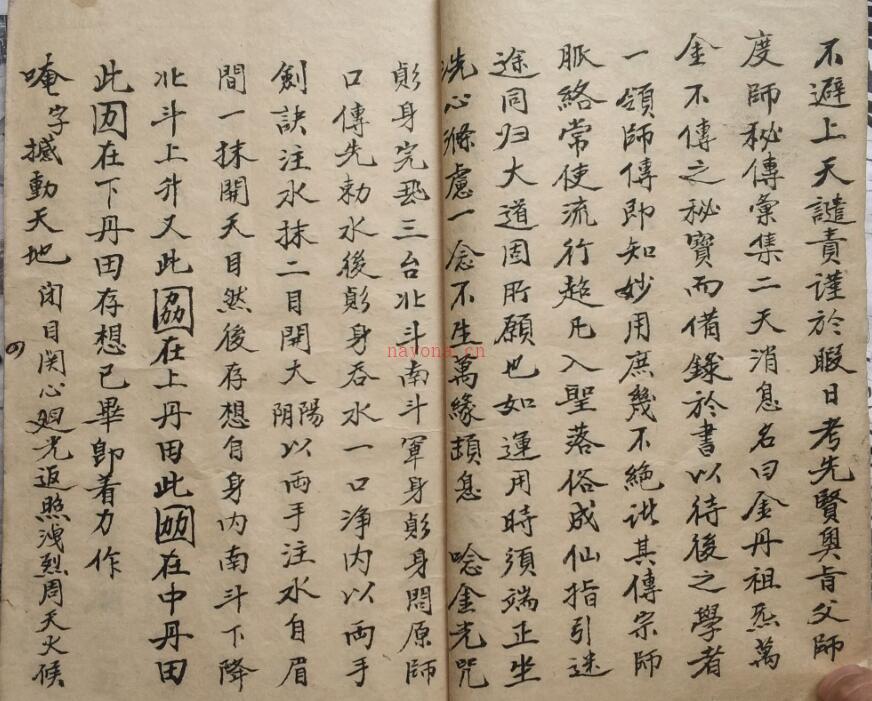 不避上天譴責謹於暇日考先賢奧旨父師
度師秘傳彙集二天消息名曰金丹祖炁萬
金不傳之秘寶而備錄於書以待後之學者
一領師傳即知妙用庶幾不絕此其傳宗師
脈絡常使流行超凡入聖落俗成仙指引迷
途同归大道固所願也如運用時須端正坐
洗心滌慮一念不生萬緣頓息 唸金光咒
身完 三台北斗南斗罩身 身罡原師
口傳先勅水後 身吞水一口净內以両手
劍訣注水抹二目開大阴陽以両手注水自眉
間一抹開天目然後存想自身內南斗下降
北斗上升又此 在上丹田此 在中丹田
此 在下丹田存想已畢即着力作
唵字撼動天地 闭目関心廻光返照洩烈周天火候
nayona.cn